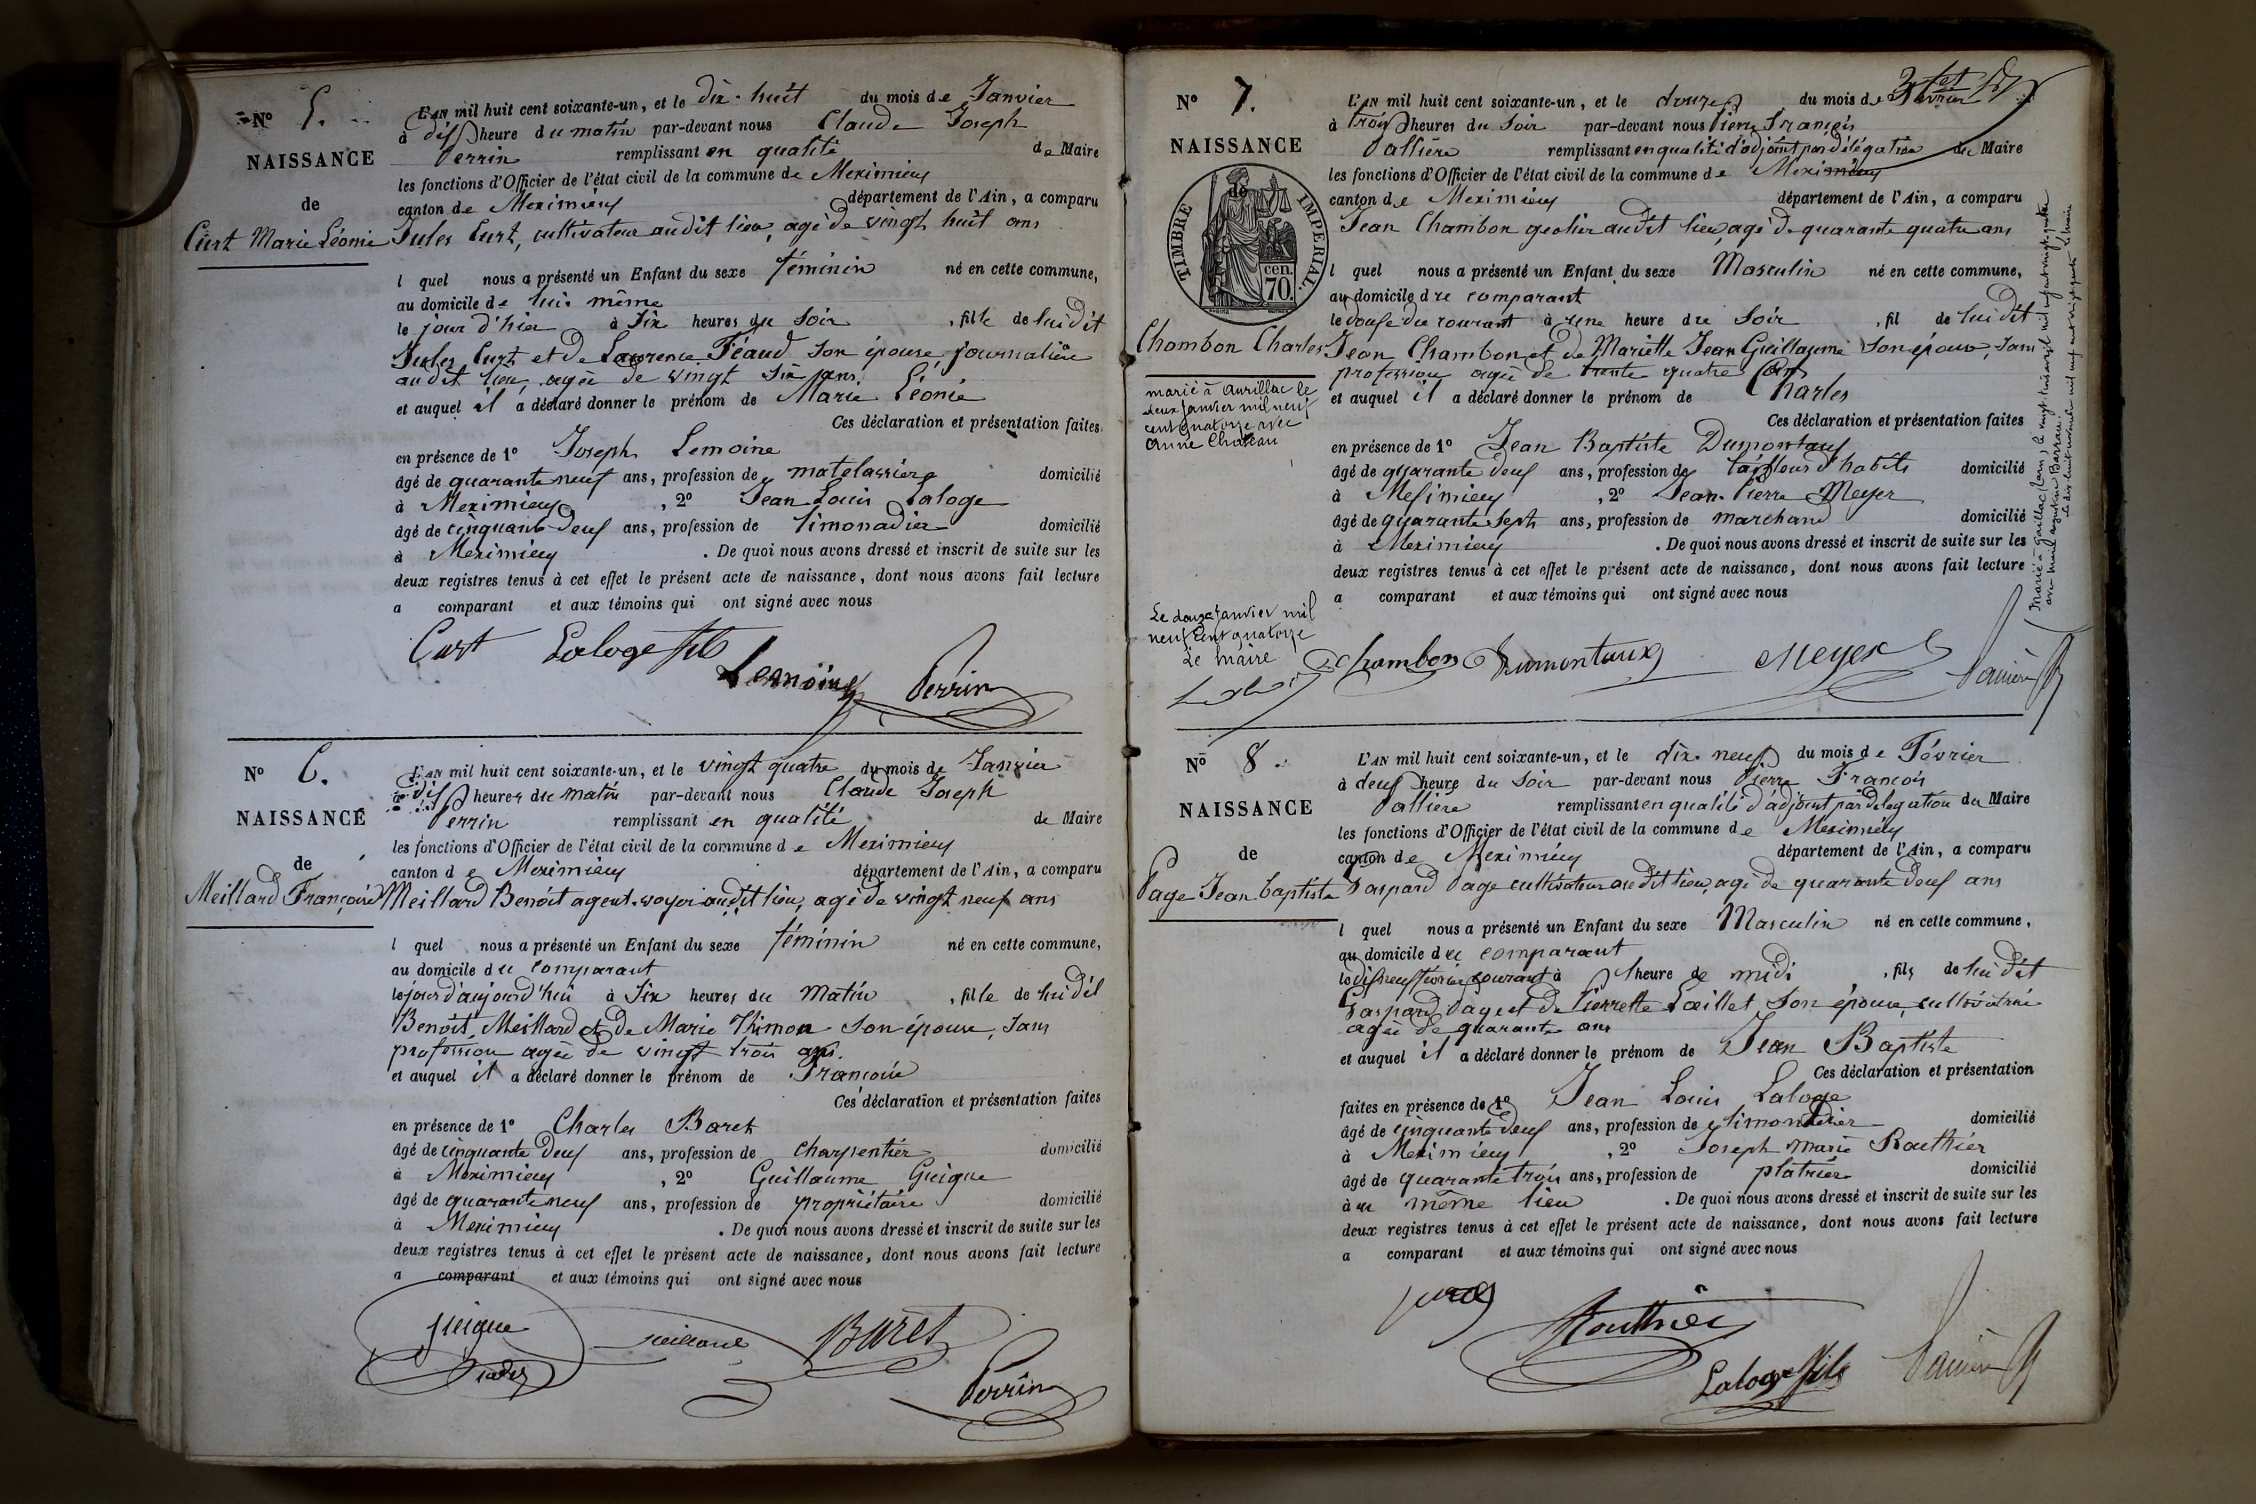 N° 5.
NAISSANCE
de
Curt Marie Léonie
L'AN mil huit cent soixante-un, et le dix-huit du mois de Janvier
à dix heure du matin par-devant nous Claude Joseph
Perrin remplissant en qualité de Maire
les fonctions d'Officier de l'état civil de la commune de Meximieux
canton de Meximieux département de l'Ain, a comparu
Jules Curt, cultivateur audit lieu, agé de vingt huit ans
l quel nous a présenté un Enfant du sexe féminin né en cette commune,
au domicile de lui même
le jour d'hier à Six heures du Soir , fille de lui dit
Jules Curt et de Laurence Féaud son épouse, journalière
audit lieu, agée de vingt six ans.
et auquel il a déclaré donner le prénom de Marie Léonie
Ces déclaration et présentation faites
en présence de 1° Joseph Lemoine
âgé de quarante neuf ans, profession de matelassier domicilié
à Meximieux , 2° Jean Louis Laloge
âgé de cinquante deux ans, profession de limonadier domicilié
à Meximieux . De quoi nous avons dressé et inscrit de suite sur les
deux registres tenus à cet effet le présent acte de naissance, dont nous avons fait lecture
a comparant et aux témoins qui ont signé avec nous
Curt Laloge fils
Lemoine Perrin
N° 6.
NAISSANCE
de
Meillard Françoise
L'AN mil huit cent soixante-un, et le vingt quatre du mois de Janvier
à dix heures du matin par-devant nous Claude Joseph
Perrin remplissant en qualité de Maire
les fonctions d'Officier de l'état civil de la commune de Meximieux
canton de Meximieux département de l'Ain, a comparu
Meillard Benoit agent-voyer audit lieu, agé de vingt neuf ans
l quel nous a présenté un Enfant du sexe féminin né en cette commune,
au domicile du comparant
le jour d'aujourd'hui à Six heures du Matin , fille de lui dit
Benoit Meillard et de Marie Thimon son épouse, sans
profession agée de vingt trois ans.
et auquel il a déclaré donner le prénom de Françoise
Ces déclaration et présentation faites
en présence de 1° Charles Baret
âgé de cinquante deux ans, profession de charpentier domicilié
à Meximieux , 2° Guillaume Guigue
âgé de quarante neuf ans, profession de propriétaire domicilié
à Meximieux . De quoi nous avons dressé et inscrit de suite sur les
deux registres tenus à cet effet le présent acte de naissance, dont nous avons fait lecture
a comparant et aux témoins qui ont signé avec nous
Guigue Meillard Baret
Perrin
N° 7.
NAISSANCE
de
TIMBRE IMPERIAL.
cen.
70.
Chambon Charles
marié à Aurillac le
deux janvier mil neuf
cent quatorze avec
Anne Chateau
Le douze janvier mil
neuf cent quatorze
Le Maire
L'AN mil huit cent soixante-un, et le douze du mois de Février
à trois heures du Soir par-devant nous Pierre François
Pallière remplissant en qualité d'adjoint par délégation du Maire
les fonctions d'Officier de l'état civil de la commune de Meximieux
canton de Meximieux département de l'Ain, a comparu
Jean Chambon geolier audit lieu, agé de quarante quatre ans
l quel nous a présenté un Enfant du sexe Masculin né en cette commune,
au domicile du comparant
le douze du courant à une heure du Soir , fil de lui dit
Jean Chambon et de Mariette Jean Guillaume son épouse, sans
profession agée de trente quatre ans
et auquel il a déclaré donner le prénom de Charles
Ces déclaration et présentation faites
en présence de 1° Jean Baptiste Dumontaux
âgé de quarante deux ans, profession de tailleur d'habits domicilié
à Meximieux , 2° Jean-Pierre Meyer
âgé de quarante sept ans, profession de marchand domicilié
à Meximieux . De quoi nous avons dressé et inscrit de suite sur les
deux registres tenus à cet effet le présent acte de naissance, dont nous avons fait lecture
a comparant et aux témoins qui ont signé avec nous
Chambon Dumontaux Meyer
Pallière
Marié à Gaillac (Tarn) le vingt trois avril mil neuf cent vingt quatre
avec Marie Augustine Barrau.
N° 8.
NAISSANCE
de
Page Jean baptiste
L'AN mil huit cent soixante-un, et le dix neuf du mois de Février
à deux heure du Soir par-devant nous Pierre François
Pallière remplissant en qualité d'adjoint par délégation du Maire
les fonctions d'Officier de l'état civil de la commune de Meximieux
canton de Meximieux département de l'Ain, a comparu
Gaspard Page cultivateur audit lieu, agé de quarante deux ans
l quel nous a présenté un Enfant du sexe Masculin né en cette commune,
au domicile du comparant
le dix neuf février courant à l'heure de midi , fils de lui dit
Gaspard Page et de Pierrette Lœillet son épouse, cultivatrice
agée de quarante ans
et auquel il a déclaré donner le prénom de Jean Baptiste
Ces déclaration et présentation
faites en présence de 1° Jean Louis Laloge
âgé de cinquante deux ans, profession de limonadier domicilié
à Meximieux , 2° Joseph Marie Routhier
âgé de quarante trois ans, profession de platrier domicilié
à u même lieu . De quoi nous avons dressé et inscrit de suite sur les
deux registres tenus à cet effet le présent acte de naissance, dont nous avons fait lecture
a comparant et aux témoins qui ont signé avec nous
Routhier
Laloge fils Pallière